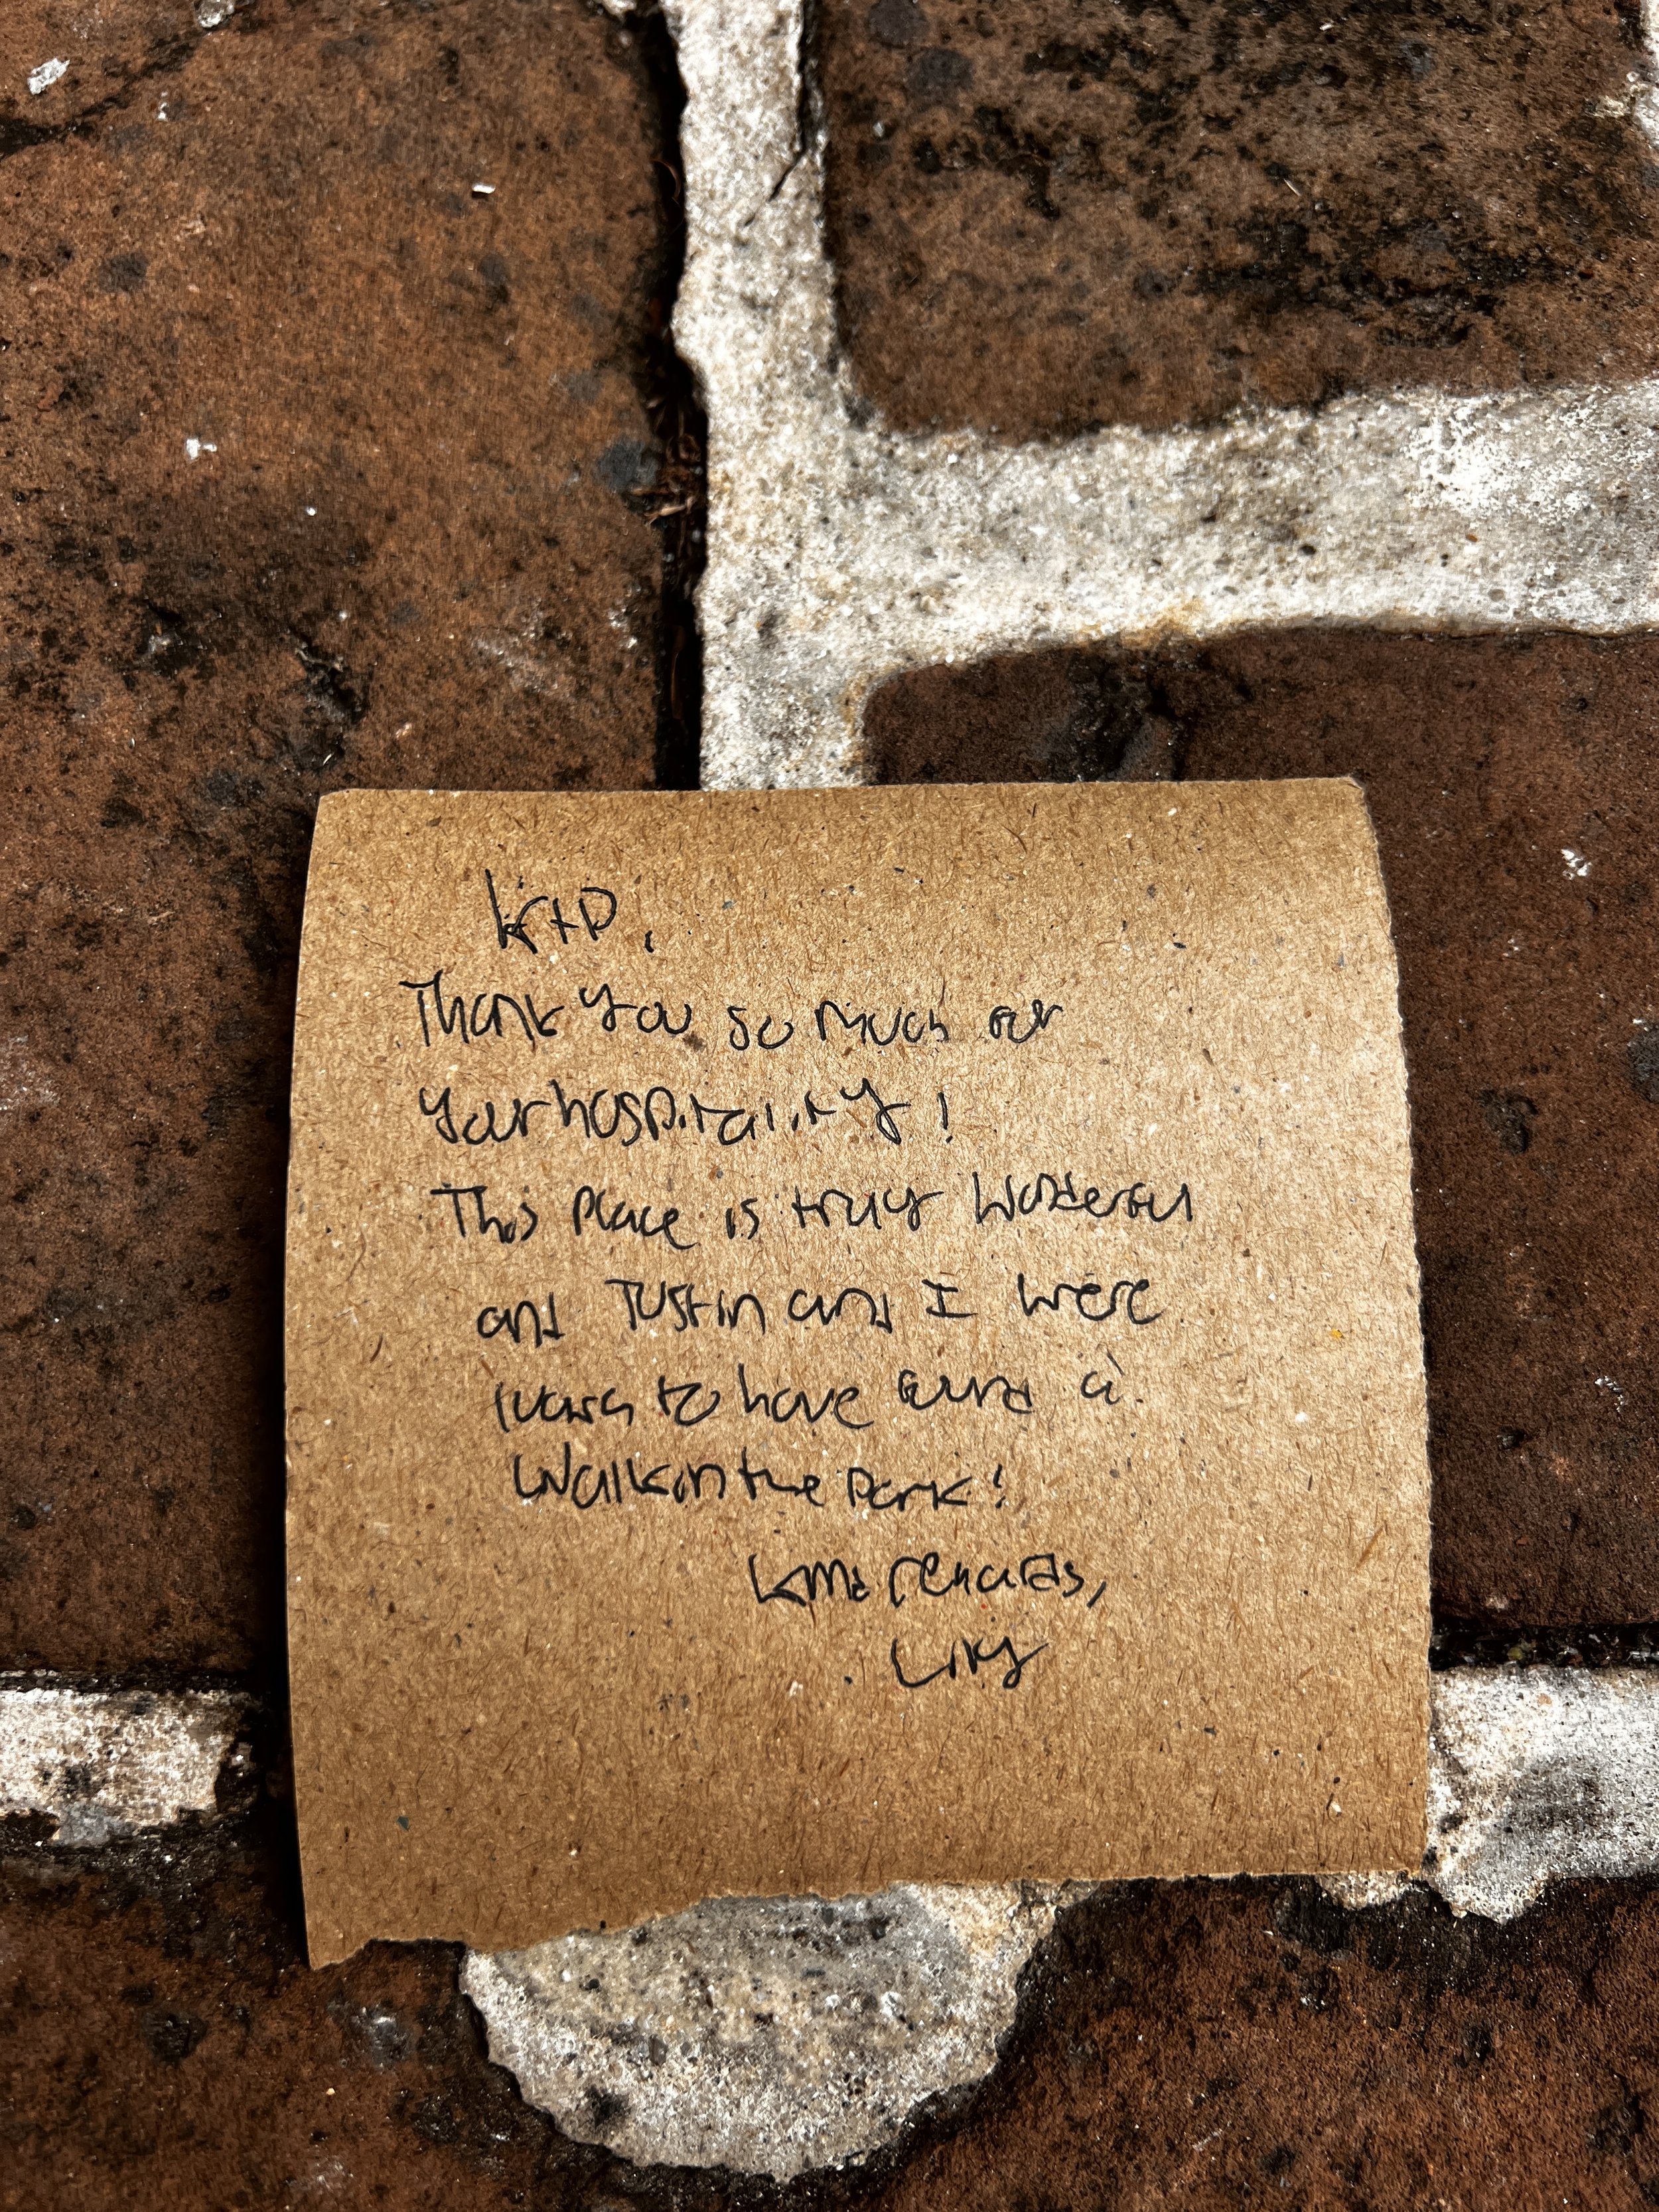 K+D,
Thank you so much for
your hospitality!
This place is truly wonderful
and Justin and I were
lucky to have found a
walk in the park!
Kind regards,
Lily